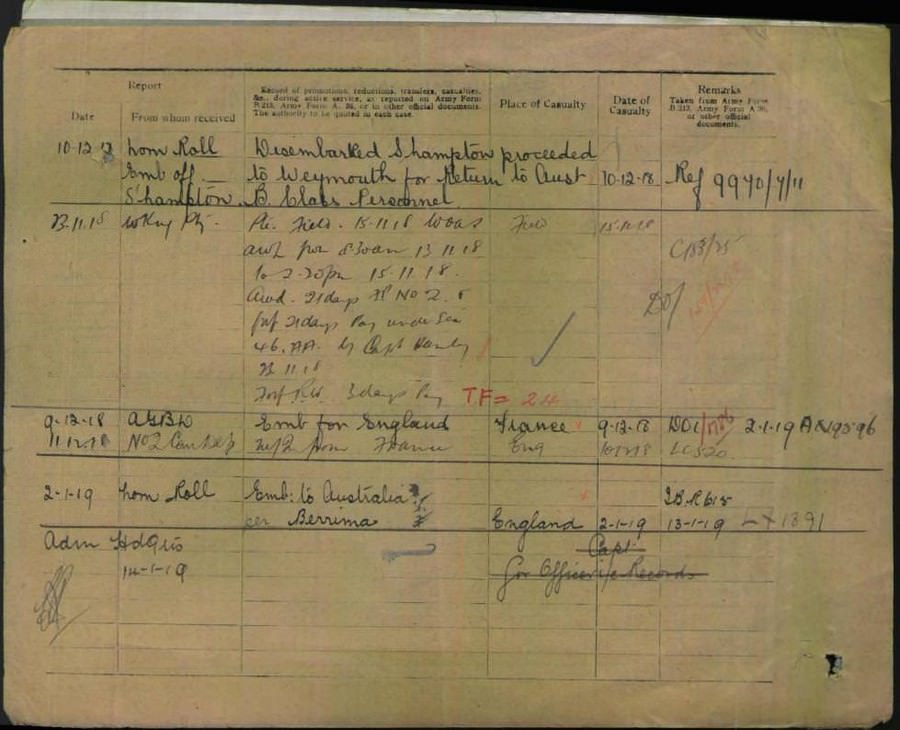 Report
Record of promotions, reductions, transfers, casualties,
&c., during active service, as reported on Army Form
B.213, Army Form A. 36, or in other official documents.
The authority to be quoted in each case.
Place of Casualty
Date of
Casualty
Remarks
Taken from Army Form
B.213, Army Form A.36,
or other official
documents.
Date
From whom received
10-12-18 Nom Roll Disembarked S'hampton proceeded
Emb off. to Weymouth for Return to Aust 10-12-18 Ref 9970/7/11
S'hampton B. Class Personnel
23.11.18 Field. 15-11-18 W.O.A.S Field 15-11-18
awl from 8.30am 13 11 18 C188/25
to 2-30pm 15-11-18.
Awd. 21 days FP No 2. & DO/
forf 21 days Pay under Sec
46. AA. by Capt
23 11 18
3 days Pay TF= 24
9-12-18 AGBD Emb for England France 9-12-18 DO1/ 2-1-19
11-12-18 No2 from France Eng 10-12-18
2-1-19 Nom Roll Emb: to Australia
per Berrima England 2-1-19 13-1-19
Adm HdQrs Capt
14-1-19 for Officer i/c Records